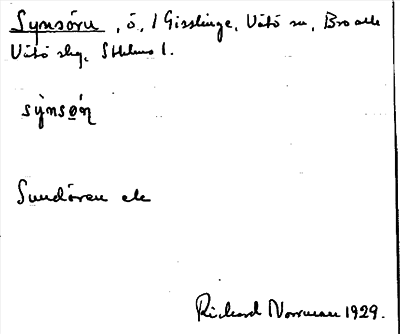 Synsörn, ö, 1 Gisslinge, Vätö sn, Bro och
Vätö skg, Sthlms l.
sy̍nsøη
Sundören ek
Rickard Norrman 1929.